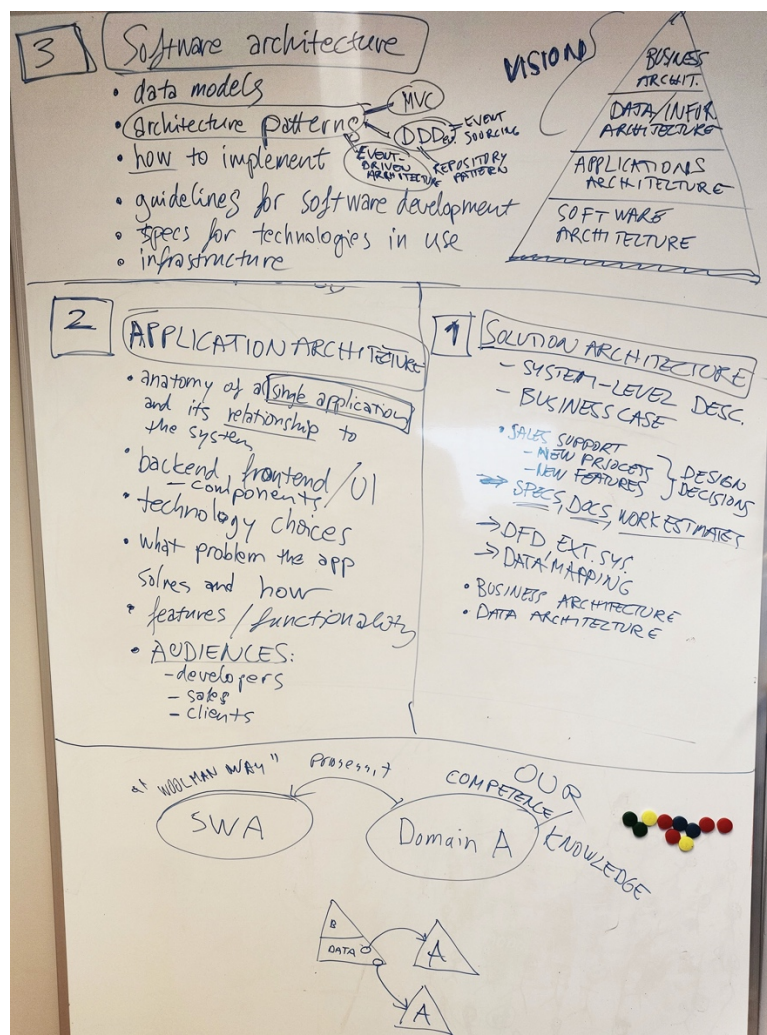 3
Software architecture
• data models
• architecture patterns
MVC
DDD
EVENT SOURCING
REPOSITORY PATTERN
EVENT-DRIVEN ARCHITECTURE
• how to implement
• guidelines for software development
• specs for technologies in use
• infrastructure
VISION
BUSINESS
ARCHIT.
DATA/INFOR
ARCHITECTURE
APPLICATIONS
ARCHITECTURE
SOFTWARE
ARCHITECTURE
2
APPLICATION ARCHITECTURE
• anatomy of a single application
and its relationship to
the system
• backend, frontend/UI
- components
• technology choices
• what problem the app
solves and how
• features/functionality
• AUDIENCES:
- developers
- sales
- clients
1
SOLUTION ARCHITECTURE
- SYSTEM-LEVEL DESC.
- BUSINESS CASE
• SALES SUPPORT
- NEW PROJECTS
- NEW FEATURES
DESIGN
DECISIONS
→ SPECS, DOCS, WORK ESTIMATES
→ DFD EXT. SYS.
→ DATA MAPPING
• BUSINESS ARCHITECTURE
• DATA ARCHITECTURE
"WOOLMAN WAY"
prosessit
SWA
Domain A
OUR
COMPETENCE/
KNOWLEDGE
B
DATA
A
A